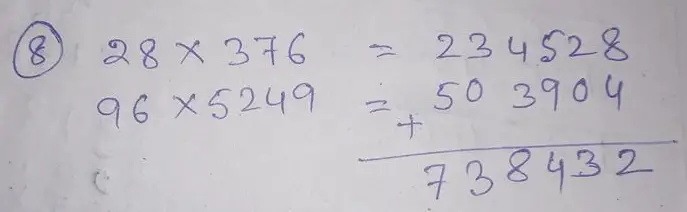 8 28 × 376 = 234528
96 × 5249 = 503904
+
738432